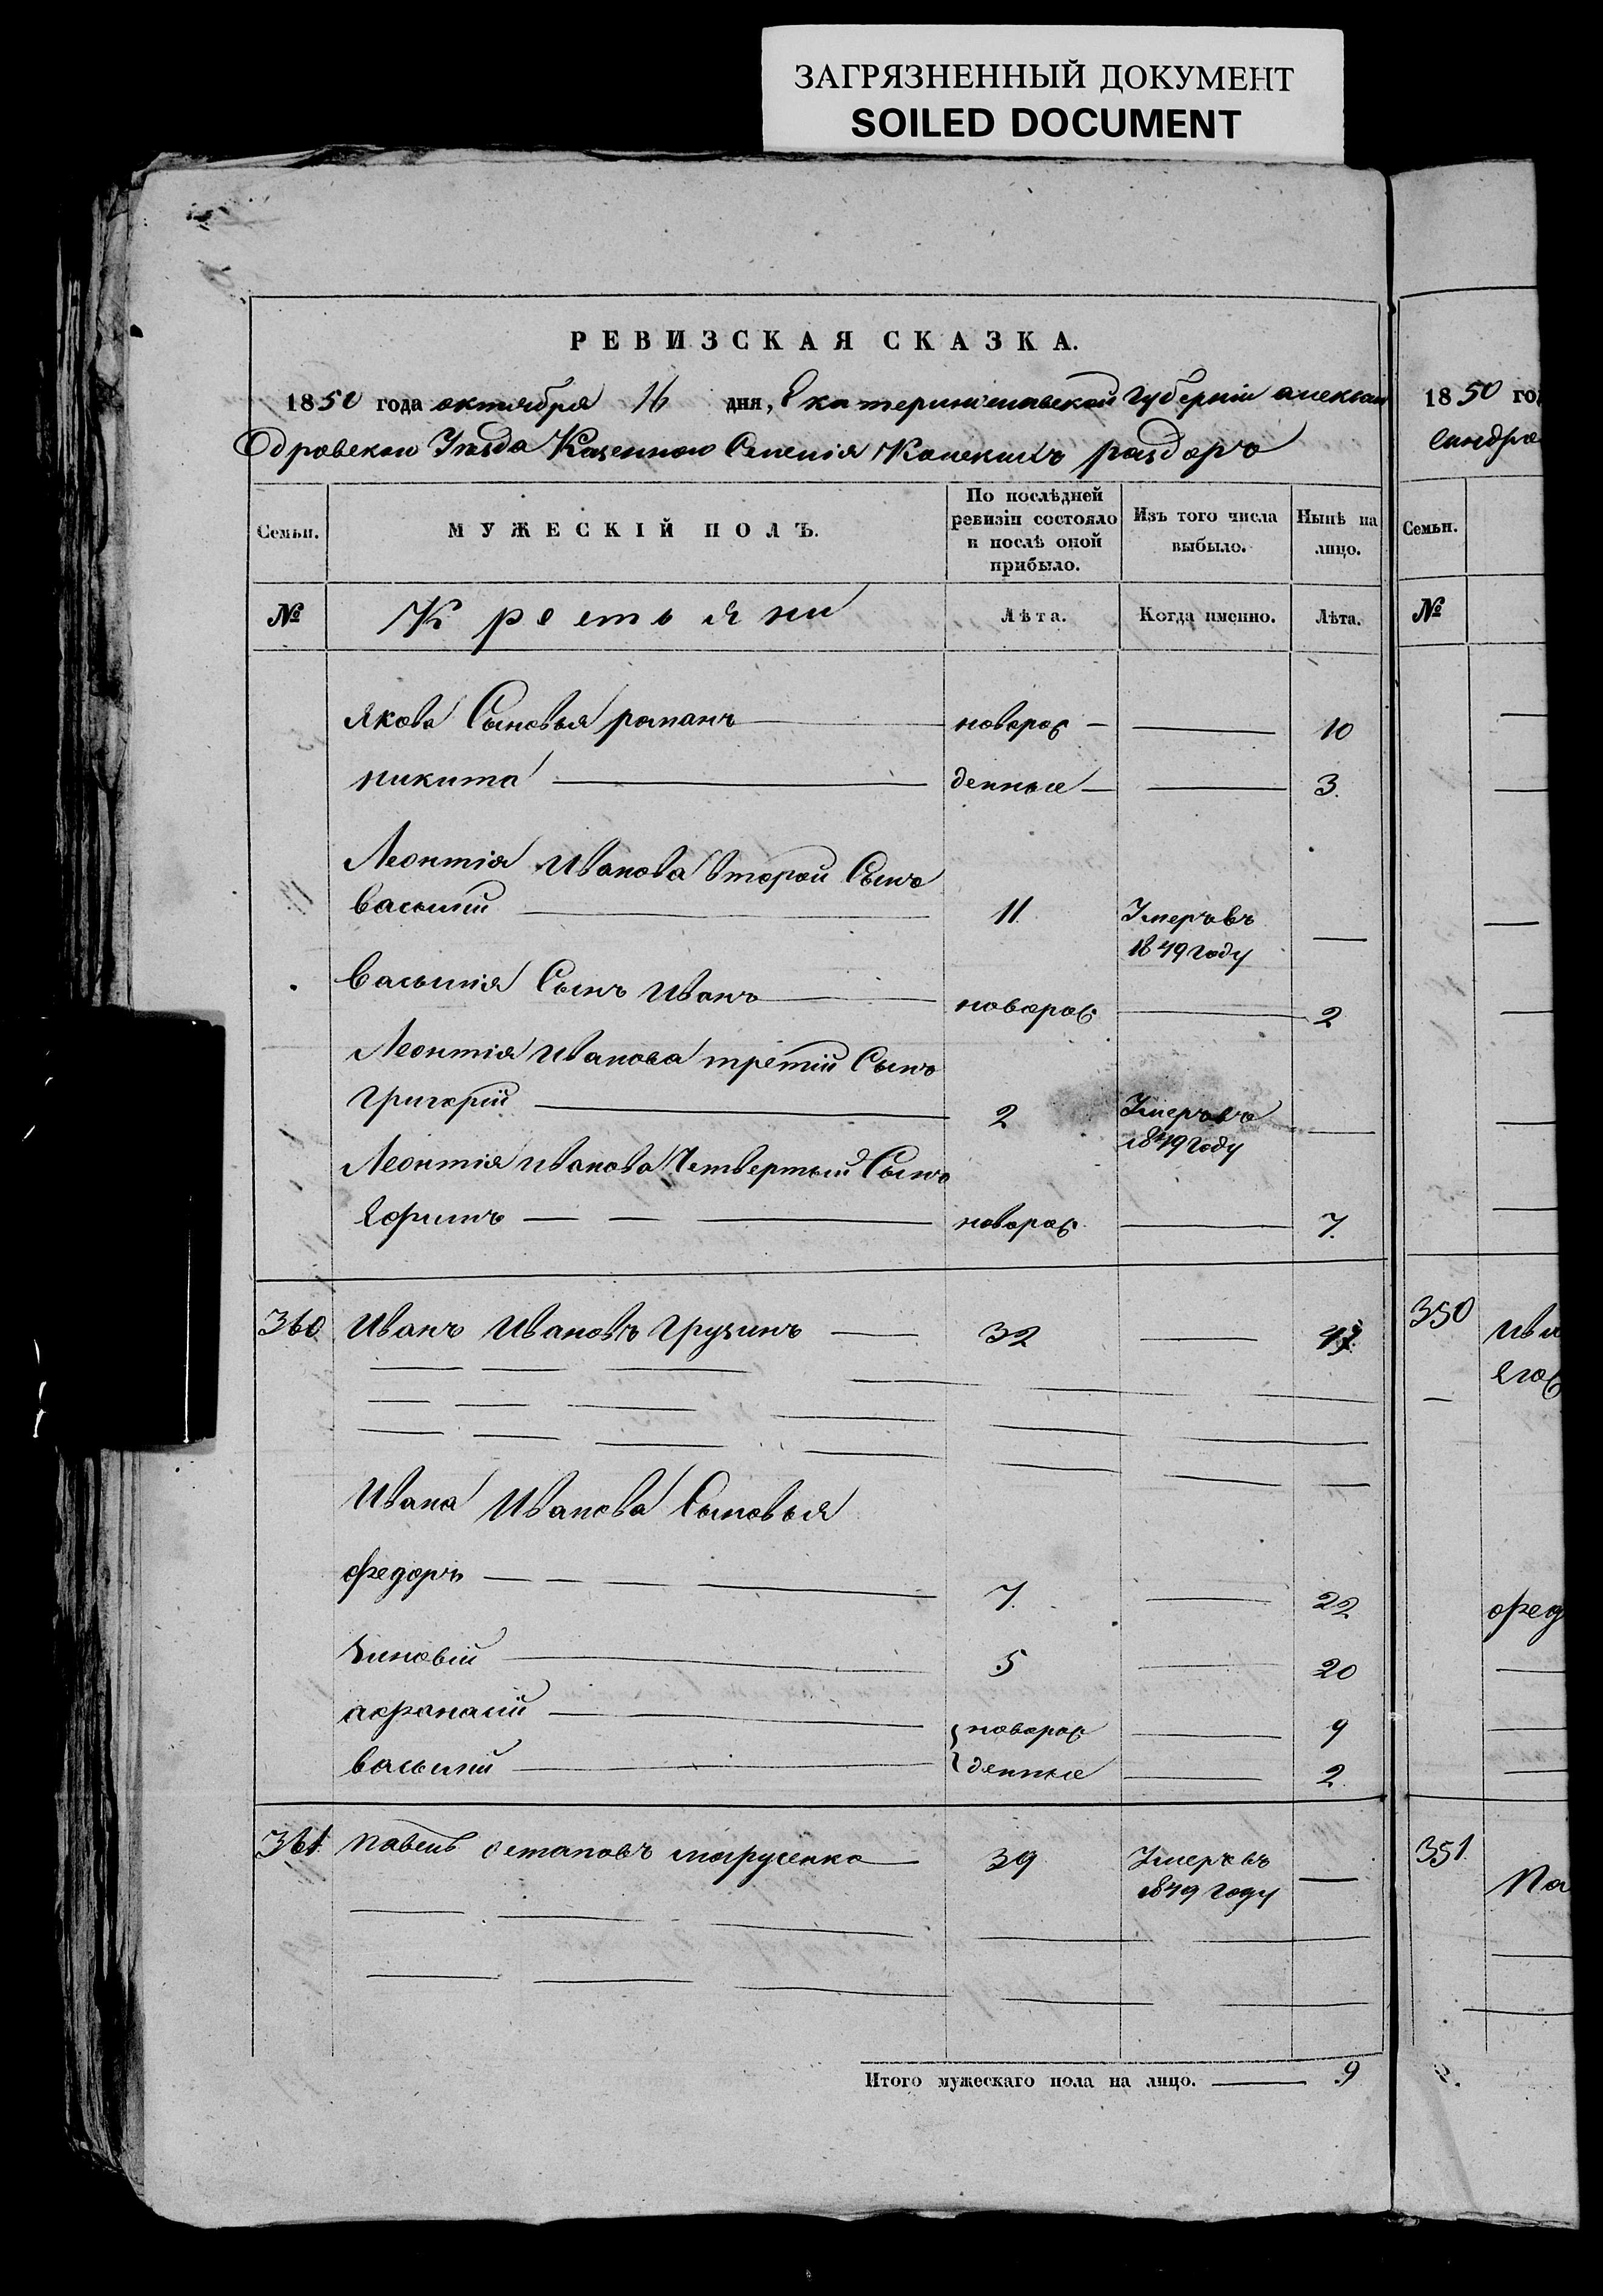 ЗАГРЯЗНЕННЫЙ ДОКУМЕНТ
SOILED DOCUMENT
РЕВИЗСКАЯ СКАЗКА.
1850 года октября 16 дня, Екатеринославской Губерніи Александровской Уезда Казенного Селенія Конскихъ раздоръ
Семьи. МУЖЕСКІЙ ПОЛЪ. По послѣдней ревизіи состояло и послѣ оной прибыло. Изъ того числа выбыло. Нынѣ на лицо.
№ Крестьяни Лѣта. Когда именно. Лѣта.
Якова Сыновья романъ новорож 10
никита денные 3.
Леонтія Иванова второй Сынъ
василий 11. Умеръ въ
1849 году
василия Сынъ Иванъ новорож 2
Леонтія Иванова третій Сынъ
григорій 2 Умеръ въ
1849 году
Леонтія Иванова Четвертый Сынъ
Ефимъ новорож 7.
360 Иванъ Ивановъ Грузинъ 32 47.
Ивана Иванова Сыновья
федоръ 7. 22
зиновій 5 20
афанасий новорож 9
василий денные 2
361. павелъ остаповъ 39 Умеръ въ
1849 году
Итого мужескаго пола на лицо. 9
1850 го
Семьи.
№
350
Его
фед
351.
Па